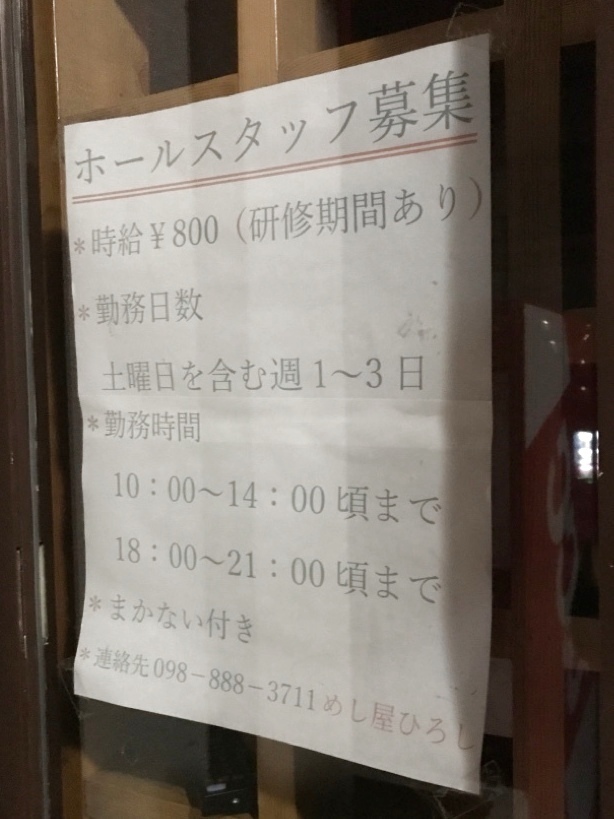 ホールスタッフ募集
*時給¥800（研修期間あり）
*勤務日数
土曜日を含む週1〜3日
*勤務時間
10：00〜14：00頃まで
18：00〜21：00頃まで
*まかない付き
*連絡先098－888－3711めし屋ひろし